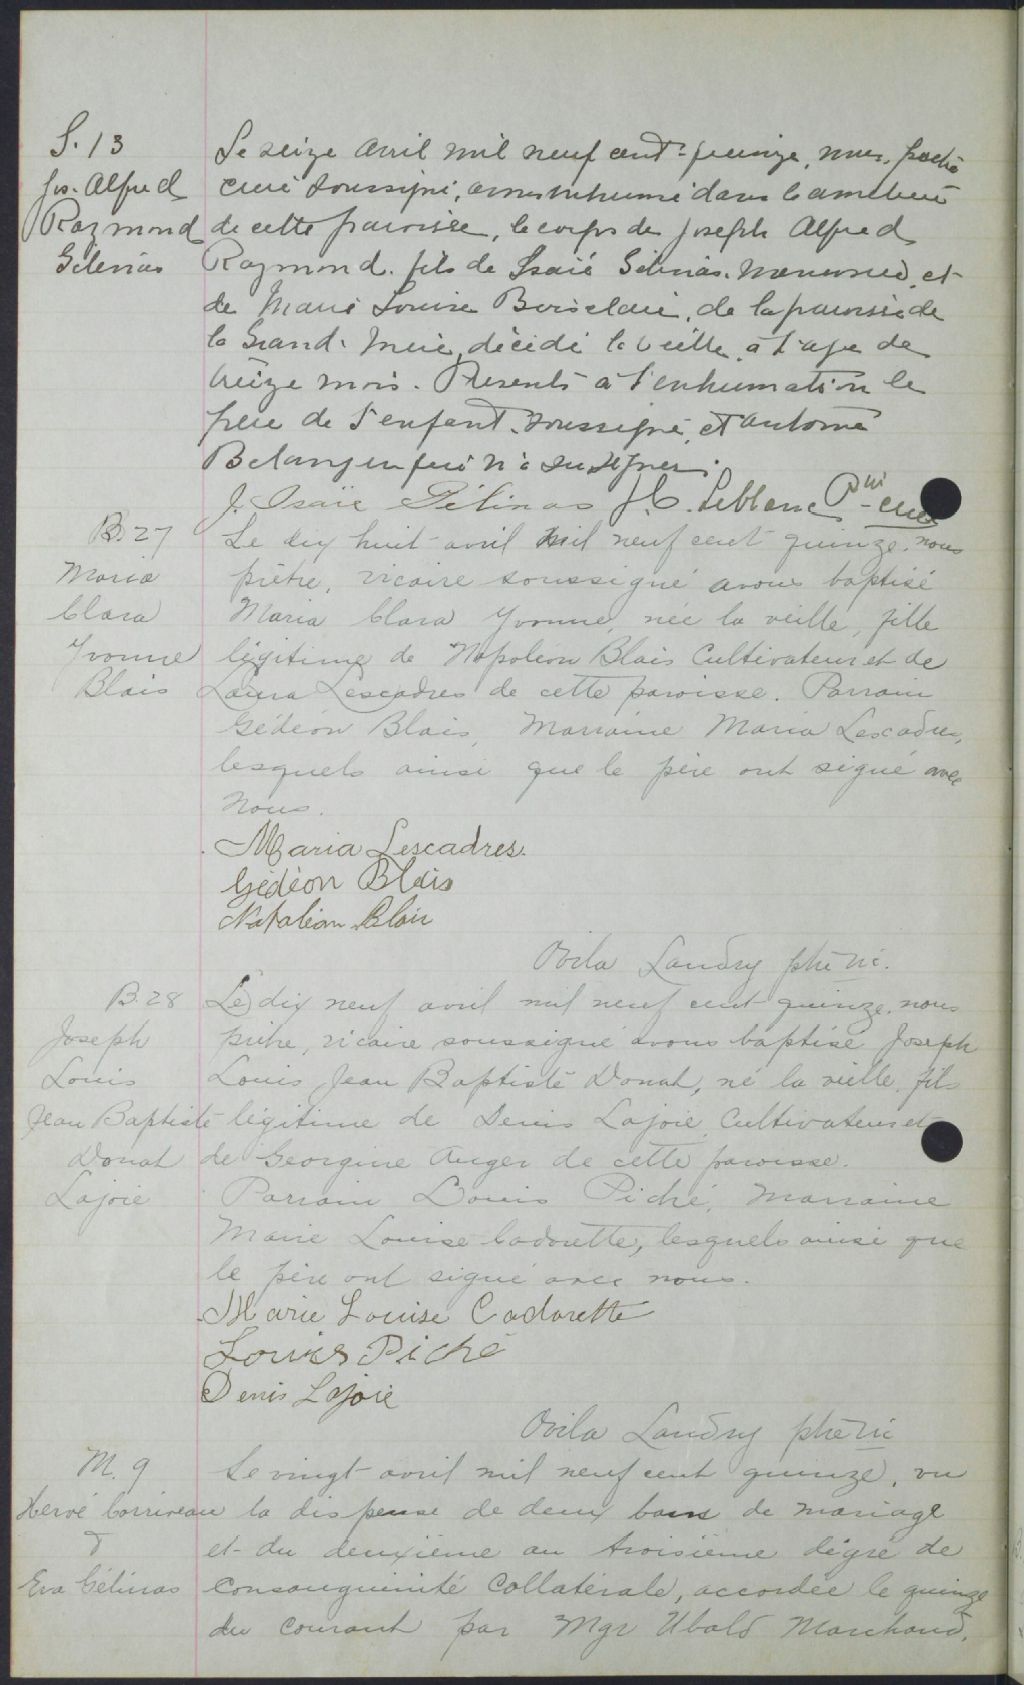 S. 13
Jos. Alfred
Raymond
Gélinas
Le seize avril mil neuf cent quinze, nous, prêtre
curé soussigné, avons inhumé dans le cimetière
de cette paroisse, le corps de Joseph Alfred
Raymond. fils de Isaïe Gélinas. menuisier, et
de Marie Louise Boisclair, de la paroisse de
la Grand'Mère, décédé la veille, à l'age de
treize mois. Présents à l'enhumation le
père de l'enfant. soussigné, et Antoine
Belanger qui n'a su signer.
J. Isaïe Gélinas J. C. Leblanc Ptre - curé
B. 27
Maria
Clara
Yvonne
Blais
Le dix huit avril mil neuf cent quinze, nous
prêtre, vicaire soussigné avons baptisé
Maria Clara Yvonne, née la veille, fille
légitime de Napoléon Blais Cultivateur et de
Laura Lescadres de cette paroisse. Parrain
Gédéon Blais, Marraine Maria Lescadres,
lesquels ainsi que le père ont signé avec
nous.
Maria Lescadres.
Gédéon Blais
Napoléon Blais
Ovila Landry ptre vic.
B. 28
Joseph
Louis
Jean Baptiste
Donat
Lajoie
Le dix neuf avril mil neuf cent quinze, nous
prêtre, vicaire soussigné avons baptisé Joseph
Louis Jean Baptiste Donat, né la veille, fils
légitime de Denis Lajoie Cultivateur et
de Georgine Auger de cette paroisse.
Parrain Louis Piché, Marraine
Marie Louise Cadorette, lesquels ainsi que
le père ont signé avec nous.
Marie Louise Cadorette
Louis Piché
Denis Lajoie
Ovila Landry ptre vic
M. 9
Hervé Corriveau
&
Eva Gélinas
Le vingt avril mil neuf cent quinze, vu
la dispense de deux bans de mariage
et du deuxième au troisième dégré de
Consanguinité Collatérale, accordée le quinze
du courant par Mgr Ubald Marchand,